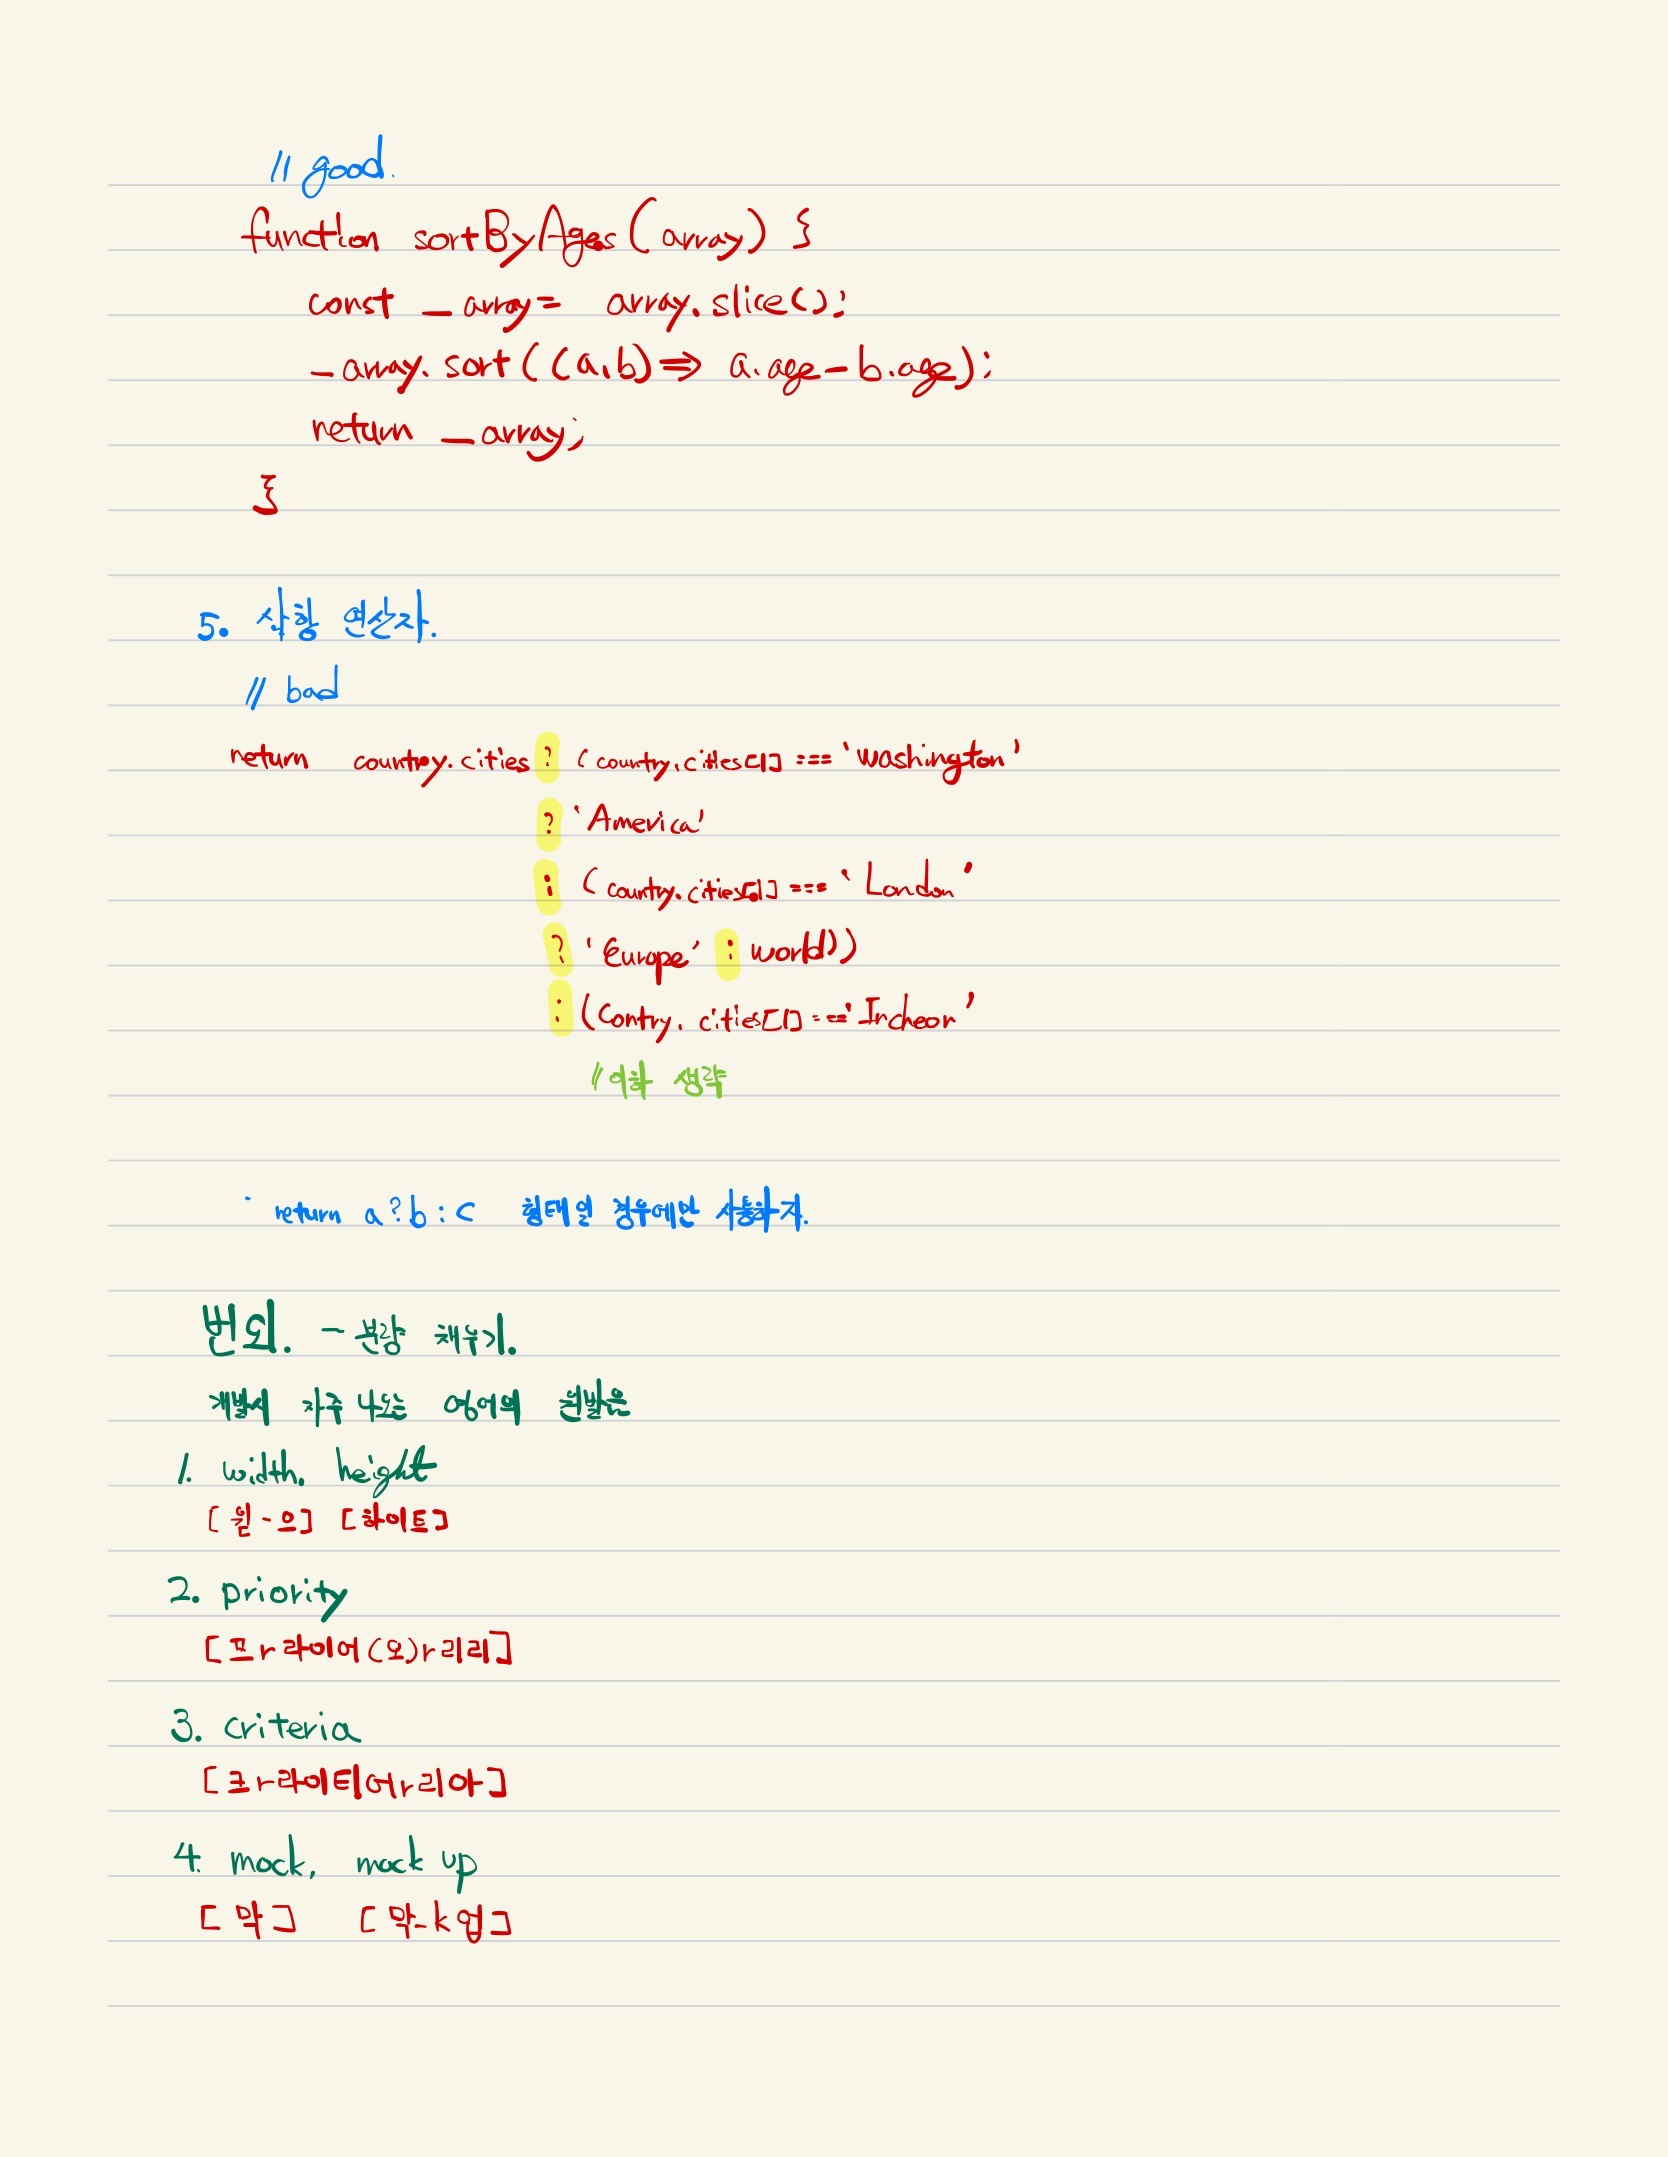 // good.
function sortByAges (array) {
const _array = array.slice();
_array.sort((a,b) => a.age - b.age);
return _array;
}
5. 삼항 연산자.
// bad
return country.cities ? (country.cities[1] === 'Washington'
? 'America'
: (country.cities[1] === 'London'
? 'Europe' : world))
: (Contry. cities[1] === 'Incheon'
// 이하 생략
· return a ? b : c 형태일 경우에만 사용하자.
번외. - 분량 채우기.
개발시 자주 나오는 영어의 원발음
1. width, height
[윋-으] [하이트]
2. priority
[프r라이어(오)r리리]
3. criteria
[크r라이티어r리아]
4. mock, mock up
[막] [막-k업]